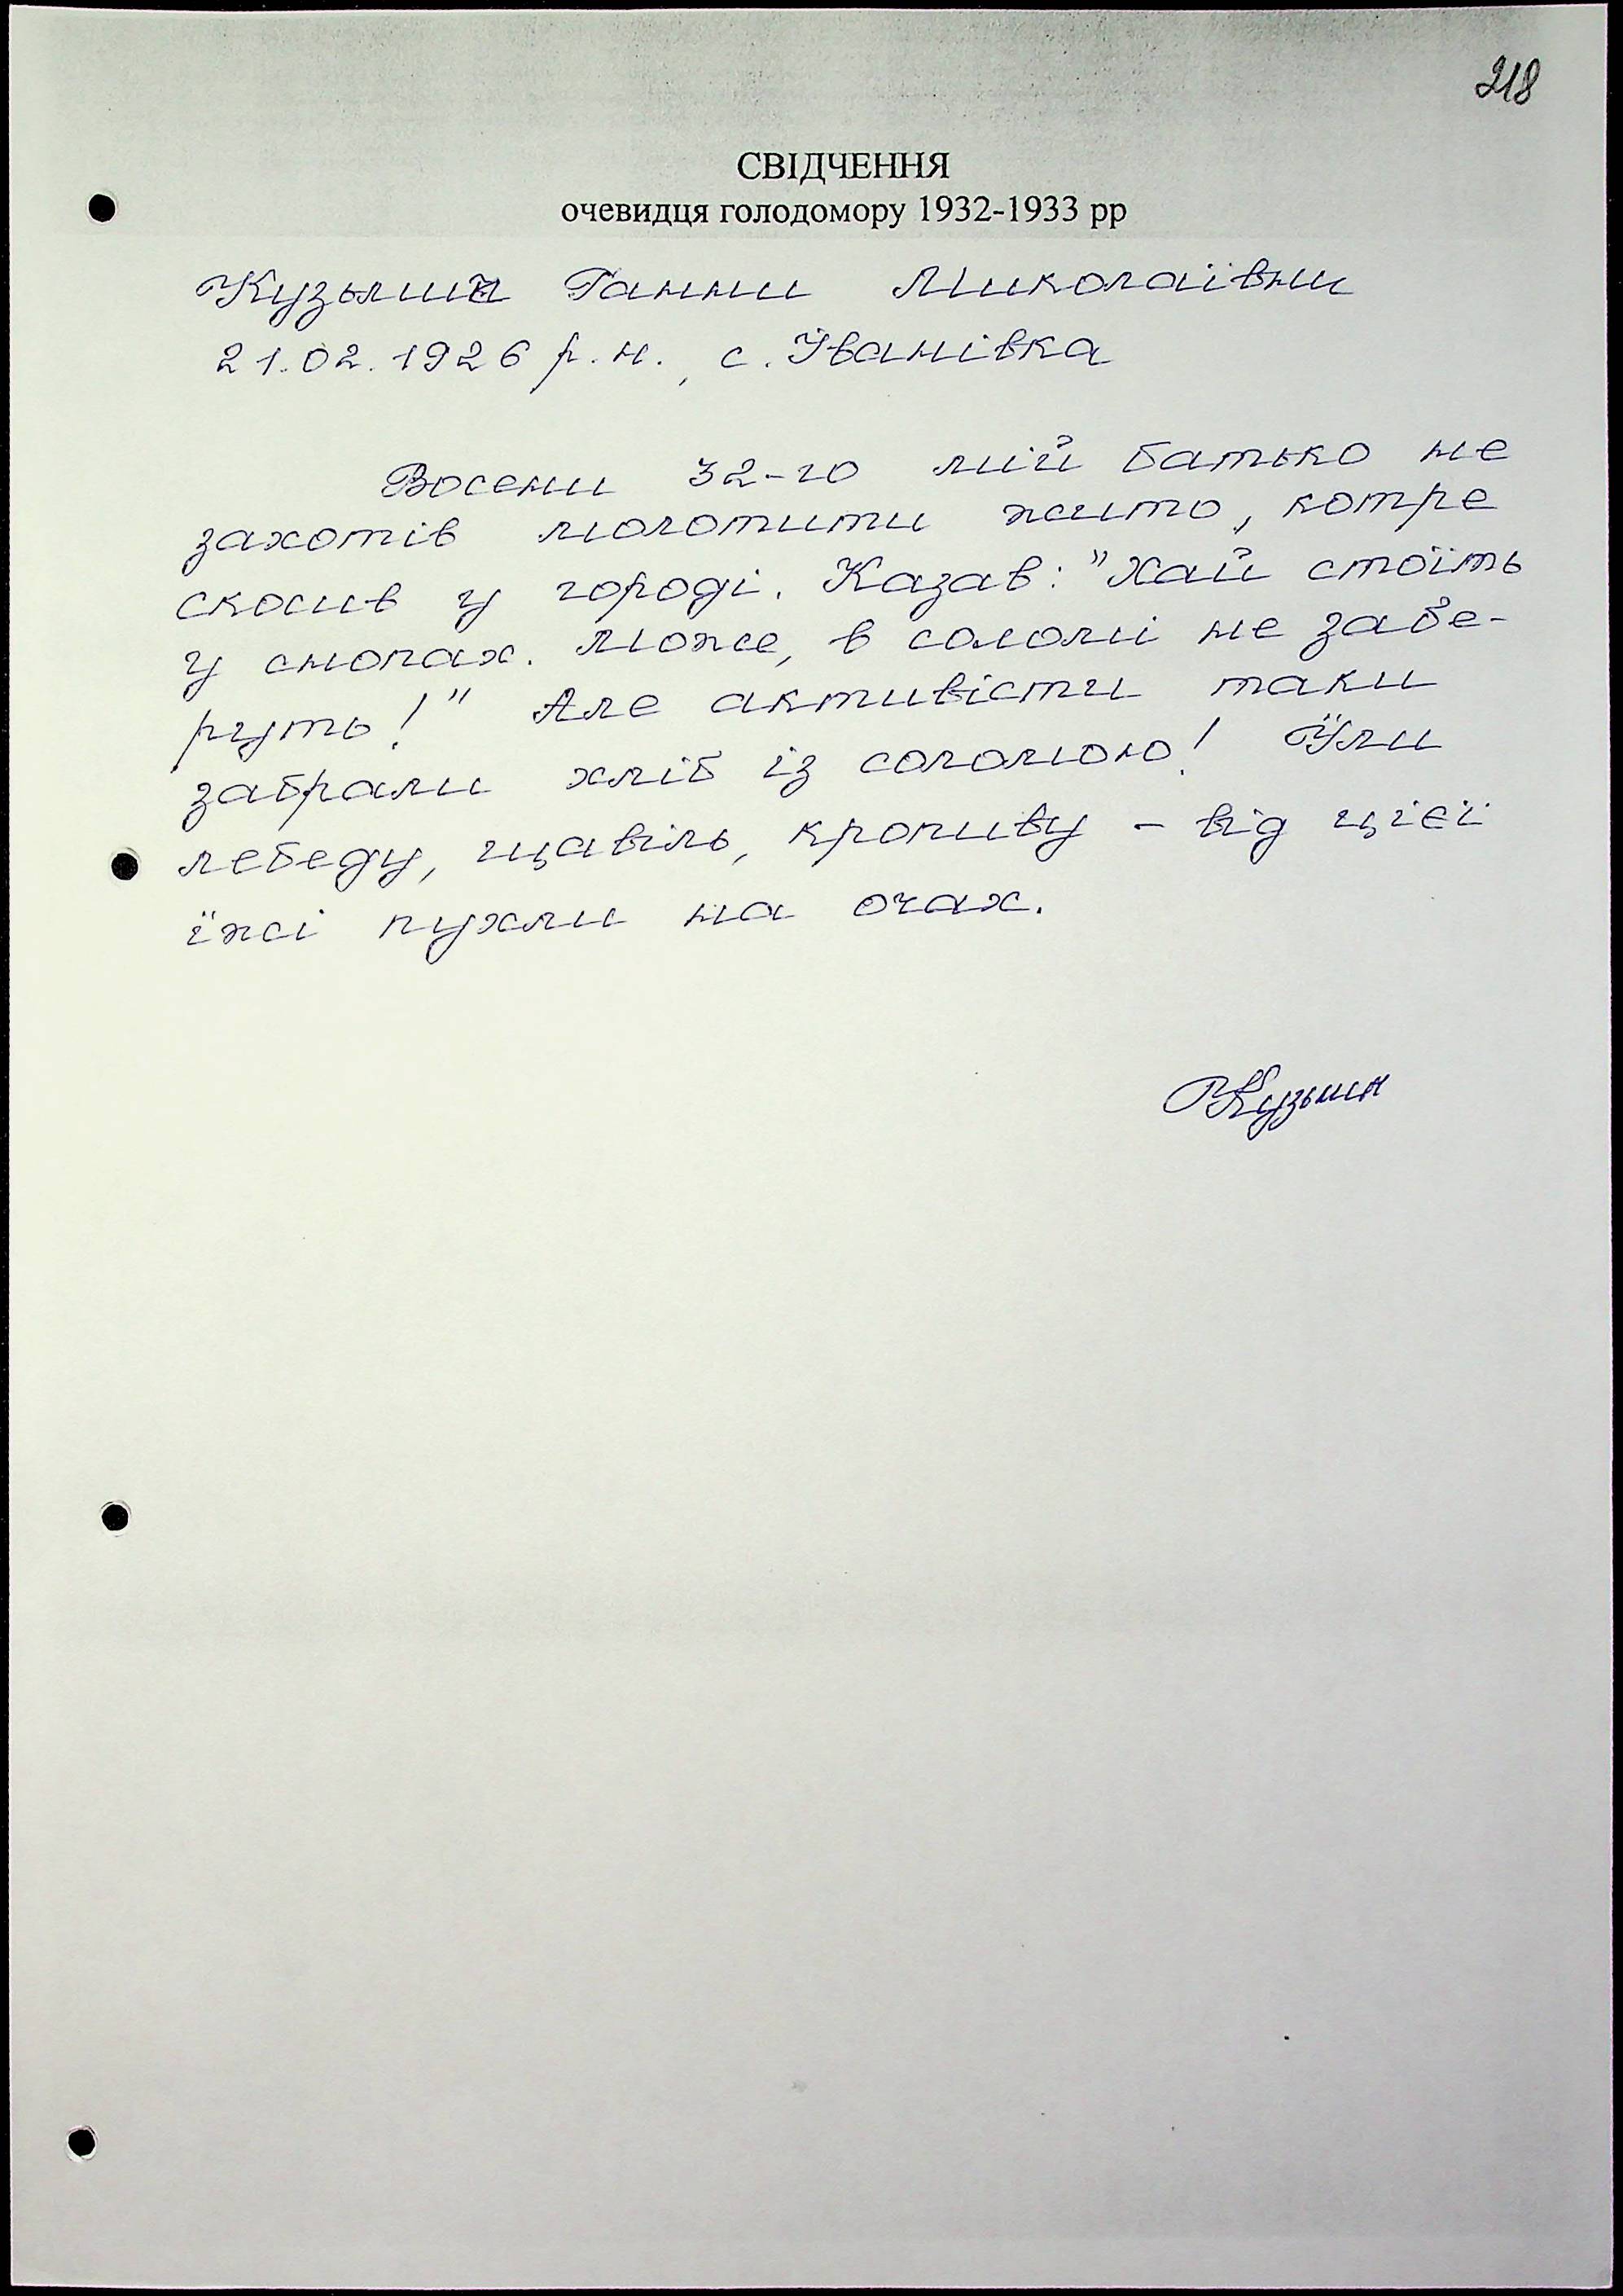 218
СВІДЧЕННЯ
очевидця голодомору 1932-1933 рр
Кузьмин Ганни Миколаївни
21.02.1926 р.н., с. Іванівка
Восени 32-го мій батько не
захотів молотити жито, котре
скосив у городі. Казав: "Хай стоїть
у снопах. Може, в соломі не забе-
руть!" Але активісти таки
забрали хліб із соломою! Їли
лебеду, щавіль, кропиву - від цієї
їжі пухли на очах.
Кузьмин